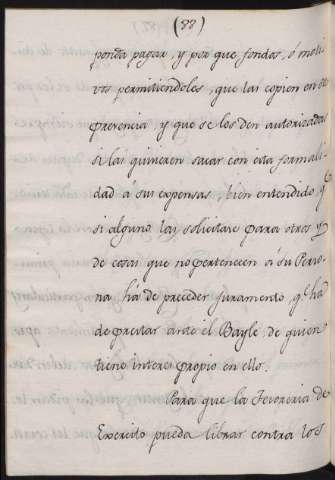 (88)
ponda pagar, y por que fondos, ó moti
vos permitiendoles, que las copien en su
prerencia, y que se les den autorizadas
si las quisieren sacar con esta formali
dad á sus expensas, bien entendido q
si alguno las solicitare para otros y
de cosas que no pertenecen á su Perso
na, há de preceder juramento, q.e há
de prestar ante el Bayle, de quien
tiene interes propio en ello.
Para que la Tesoreria de
Exercito pueda librar contra los